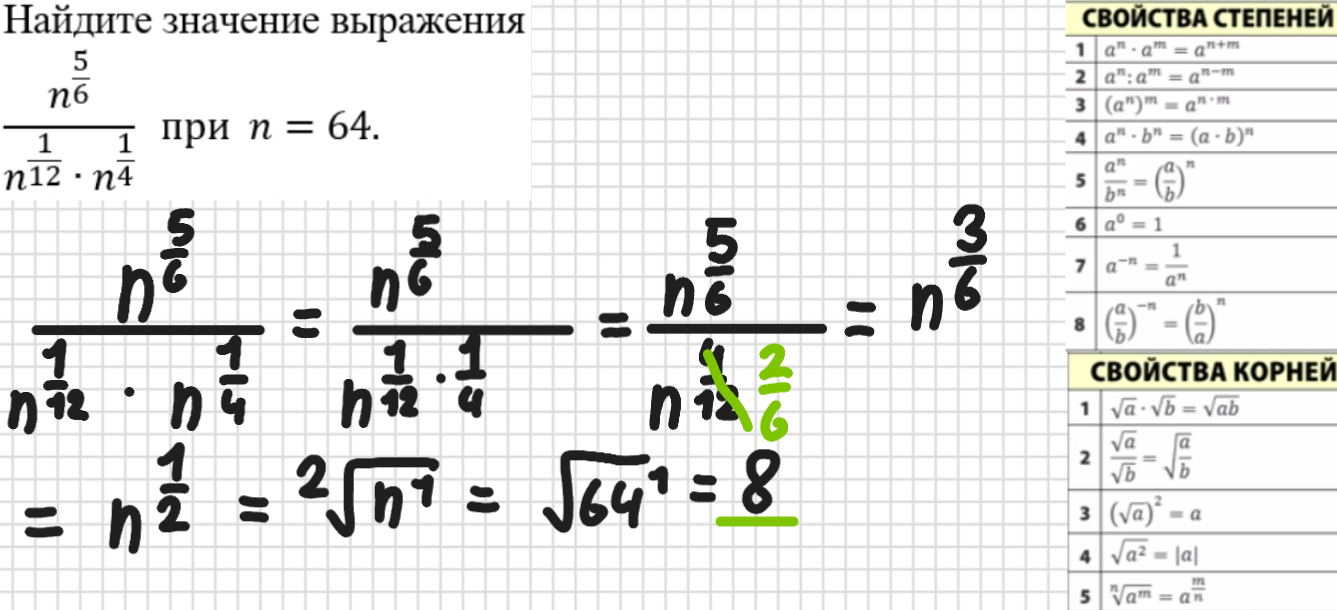 Найдите значение выражения
n^(5/6) / (n^(1/12) · n^(1/4)) при n = 64.
n^(5/6) / (n^(1/12) · n^(1/4)) = n^(5/6) / n^(1/12 · 1/4) = n^(5/6) / n^(4/12 2/6) = n^(3/6)
= n^(1/2) = ²√(n¹) = √(64¹) = 8
СВОЙСТВА СТЕПЕНЕЙ
1 aⁿ · aᵐ = aⁿ⁺ᵐ
2 aⁿ : aᵐ = aⁿ⁻ᵐ
3 (aⁿ)ᵐ = aⁿ˙ᵐ
4 aⁿ · bⁿ = (a · b)ⁿ
5 aⁿ/bⁿ = (a/b)ⁿ
6 a⁰ = 1
7 a⁻ⁿ = 1/aⁿ
8 (a/b)⁻ⁿ = (b/a)ⁿ
СВОЙСТВА КОРНЕЙ
1 √a · √b = √ab
2 √a/√b = √(a/b)
3 (√a)² = a
4 √a² = |a|
5 ⁿ√aᵐ = a^(m/n)